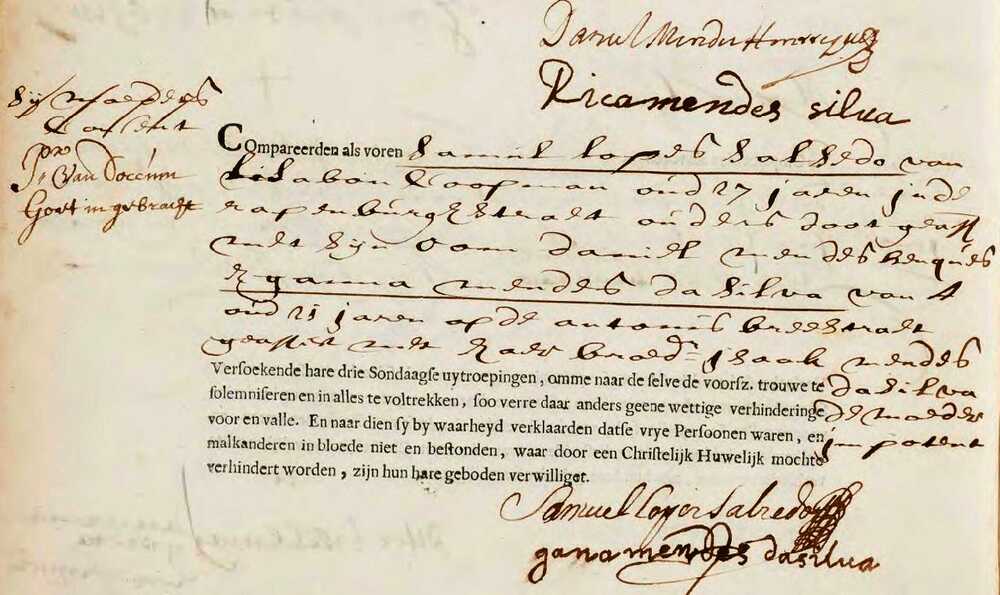 Daniel Mendes Henriques
Rica mendes silva
Sijn moeders
Consent
pr
Jr Van Doccum
Goet in gebracht
COmpareerden als voren Samuel Lopes Salsedo van
Lisabon Coopman oud 27 jaren in de
rapenburgerstraet ouders doot geasst
met sijn oom Daniel mendes henriques
& ganna mendes da silva van A
oud 21 jaren op de antonis breestraet
geassist met haer broedr isaak mendes
da silva
de moeder
impotent
Versoekende hare drie Sondaagse uytroepingen, omme naar de selve de voorsz. trouwe te
solemniseren en in alles te voltrekken, soo verre daar anders geene wettige verhinderinge
voor en valle. En naar dien sy by waarheyd verklaarden datse vrye Persoonen waren, en
malkanderen in bloede niet en bestonden, waar door een Christelijk Huwelijk mochte
verhindert worden, zijn hun hare geboden verwilliget.
Samuel Lopes Salzedo
gana mendes da silva